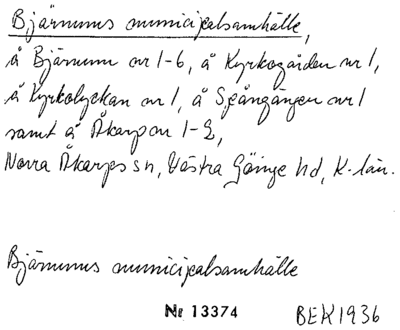 Bjärnums municipalsamhälle,
å Bjärnum nr 1-6, å Kyrkogården nr 1,
å Kyrkolyckan nr 1, å Spångängen nr 1
samt å Åkarp nr 1-2,
Norra Åkarps sn, Västra Göinge hd, K-län.
Bjärnums municipalsamhälle
Nr 13374 BEK1936